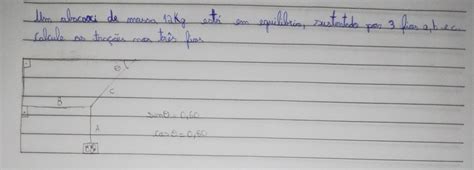 Um abacaxi de massa 12Kg está em equilíbrio, sustentado por 3 fios a, b e c.
Calcule as trações nos três fios
θ
C
B
A
senθ = 0,60
cosθ = 0,80